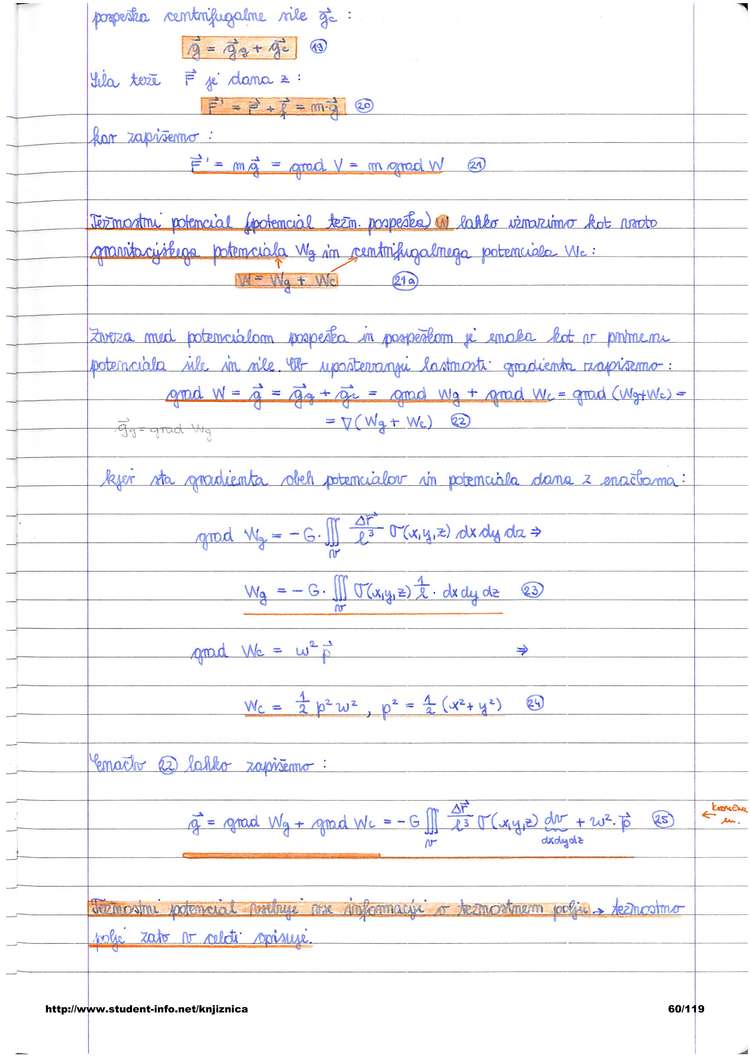 pospeška centrifugalne sile g⃗c :
g⃗ = g⃗g + g⃗c (19)
Sila teže F⃗ je dana z :
F⃗' = F⃗ + f⃗ = m·g⃗ (20)
kar zapišemo :
F⃗' = m g⃗ = grad V = m grad W (21)
Težnostni potencial (potencial težn. pospeška) W lahko izrazimo kot vsoto
gravitacijskega potenciala Wg in centrifugalnega potenciala Wc :
W = Wg + Wc (21a)
Zveza med potencialom pospeška in pospeškom je enaka kot v primeru
potenciala sile in sile. Ob upoštevanju lastnosti gradienta zapišemo :
grad W = g⃗ = g⃗g + g⃗c = grad Wg + grad Wc = grad (Wg+Wc) =
g⃗g = grad Wg = ∇(Wg + Wc) (22)
kjer sta gradienta obeh potencialov in potenciala dana z enačbama :
grad Wg = -G· ∭v Δr⃗/l³ σ(x,y,z) dx dy dz ⇒
Wg = -G· ∭v σ(x,y,z) 1/l · dx dy dz (23)
grad Wc = w² p⃗ ⇒
Wc = 1/2 p² w² , p² = 1/2 (x² + y²) (24)
Enačbo (22) lahko zapišemo :
g⃗ = grad Wg + grad Wc = -G ∭v Δr⃗/l³ σ(x,y,z) dv + w²· p⃗ (25) ←
dxdydz
Težnostni potencial vsebuje vse informacije o težnostnem polju → težnostno
polje zato v celoti opisuje.
http://www.student-info.net/knjiznica 60/119